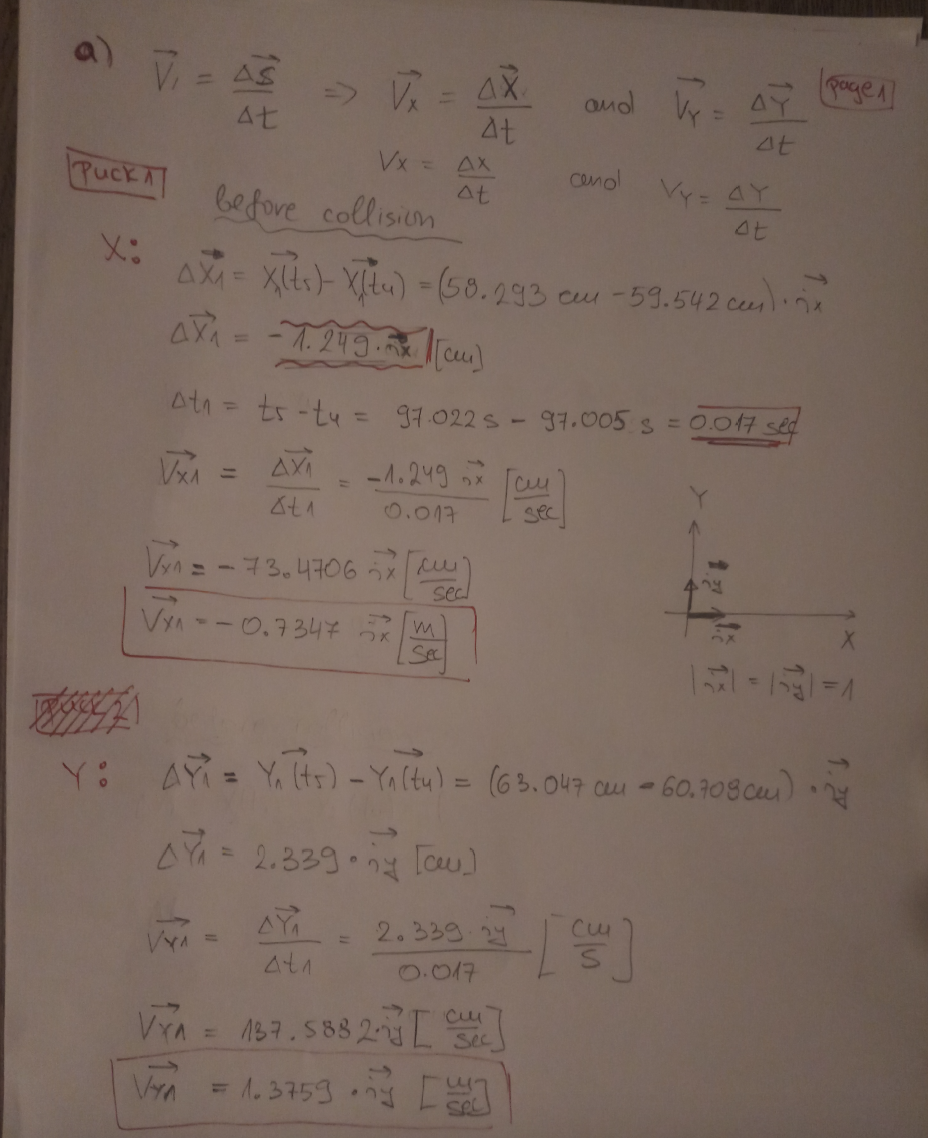 a) V⃗₁ = Δs⃗/Δt ⇒ V⃗x = ΔX⃗/Δt and V⃗Y = ΔY⃗/Δt page 1
Vx = Δx/Δt and VY = ΔY/Δt
PUCK 1
before collision
X:
ΔX⃗1 = X⃗1(t5) - X⃗1(t4) = (58.293 cm - 59.542 cm) · i⃗x
ΔX⃗1 = -1.249 · i⃗x [cm]
Δt1 = t5 - t4 = 97.022 s - 97.005 s = 0.017 sec
V⃗x1 = ΔX⃗1/Δt1 = -1.249 i⃗x/0.017 [cm/sec]
V⃗x1 = -73.4706 i⃗x [cm/sec]
V⃗x1 = -0.7347 i⃗x [m/sec]
Y
i⃗y
i⃗x
X
|i⃗x| = |i⃗y| = 1
Y: ΔY⃗1 = Y⃗1(t5) - Y⃗1(t4) = (63.047 cm - 60.708 cm) · i⃗y
ΔY⃗1 = 2.339 · i⃗y [cm]
V⃗Y1 = ΔY⃗1/Δt1 = 2.339 · i⃗y/0.017 [cm/s]
V⃗Y1 = 137.5882 · i⃗y [cm/sec]
V⃗Y1 = 1.3759 · i⃗y [m/sec]